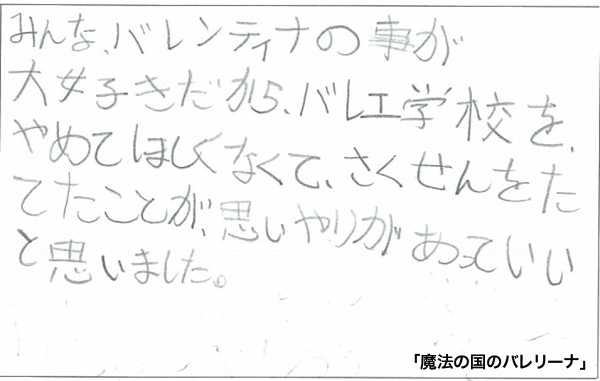 みんな、バレンティナの事が
大好きだから、バレエ学校を、
やめてほしくなくて、さくせんをた
てたことが、思いやりがあっていい
と思いました。
「魔法の国のバレリーナ」